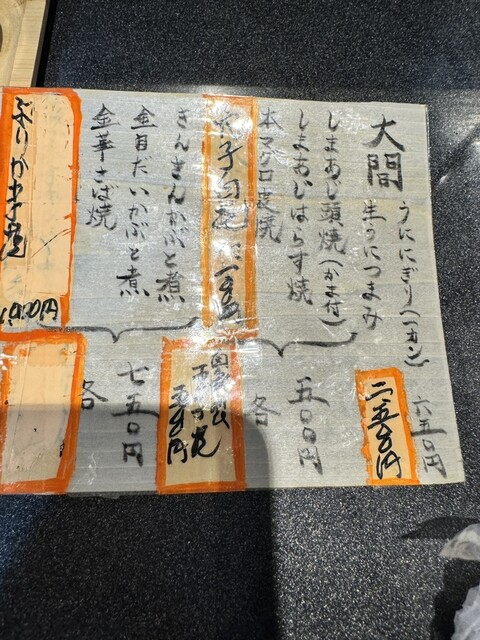 大間
うににぎり(一カン)
六五〇円
生うにつまみ
二、五〇〇円
しまあじ頭焼(かま付)
しまあじはらす焼
本マグロ皮焼
各
五〇〇円
きんきんかぶと煮
金目だいかぶと煮
金華さば焼
各
七五〇円
ぶりかま焼
1,000円